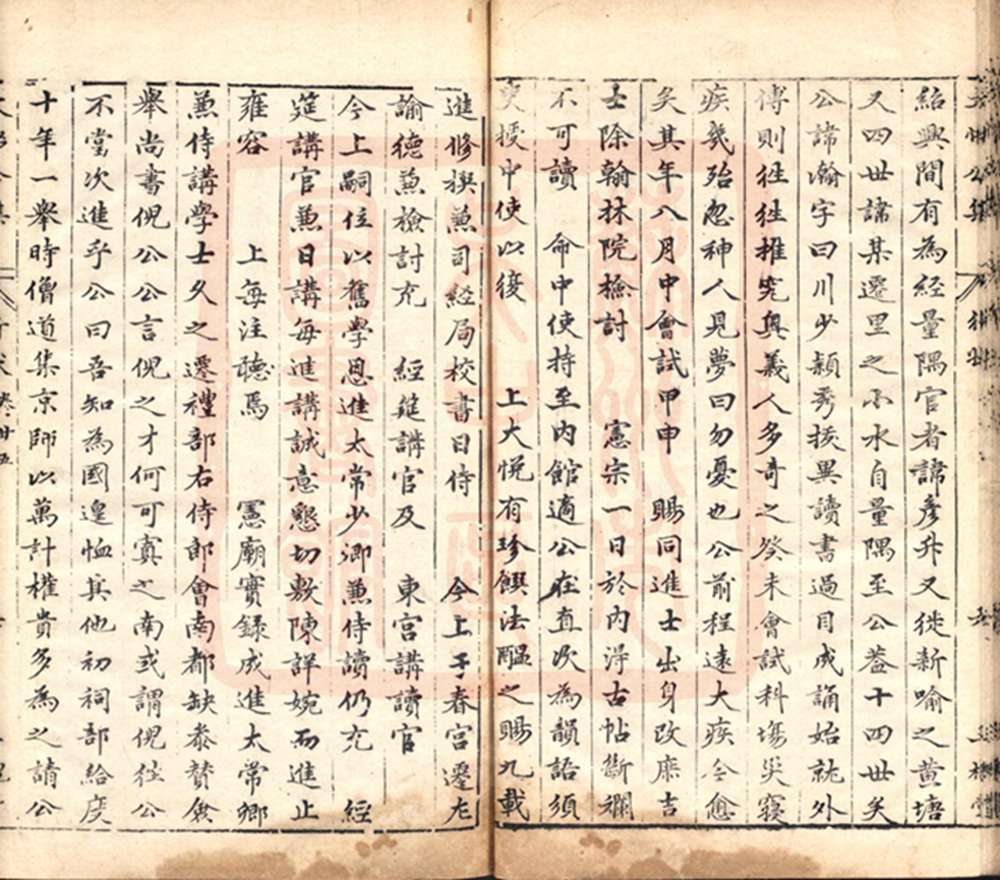 紹興間有為經量隅官者諱彥升又徙新喻之黃塘
又四世諱某遷里之小水自量隅至公葢十四世矣
公諱瀚字曰川少穎秀拔異讀書過目成誦始就外
傅則往往推究奥義人多奇之癸未會試科塲災寢
疾幾殆忽神人見夢曰勿憂也公前程遠大疾今愈
矣其年八月中會試甲申　賜同進士出身改庶吉
士除翰林院檢討　憲宗一日於內淂古帖斷襴
不可讀　命中使持至內館適公在直次為韻語須
臾授中使以復　上大悅有珍饌法醞之賜九載
進修撰兼司經局校書日侍　今上于春宮遷左
諭德兼檢討充　經筵講官及　東宮講讀官
今上嗣位以舊學恩進太常少卿兼侍讀仍充　經
筵講官兼日講每進講誠意懇切敷陳詳婉而進止
雍容　上每注聽焉　憲廟實錄成進太常卿
兼侍講學士久之遷禮部右侍郎會南都缺叅贊僉
舉尚書倪公公言倪之才何可寘之南或謂倪往公
不當次進乎公曰吾知為國遑恤其他初祠部給度
十年一舉時僧道集京師以萬計權貴多為之請公